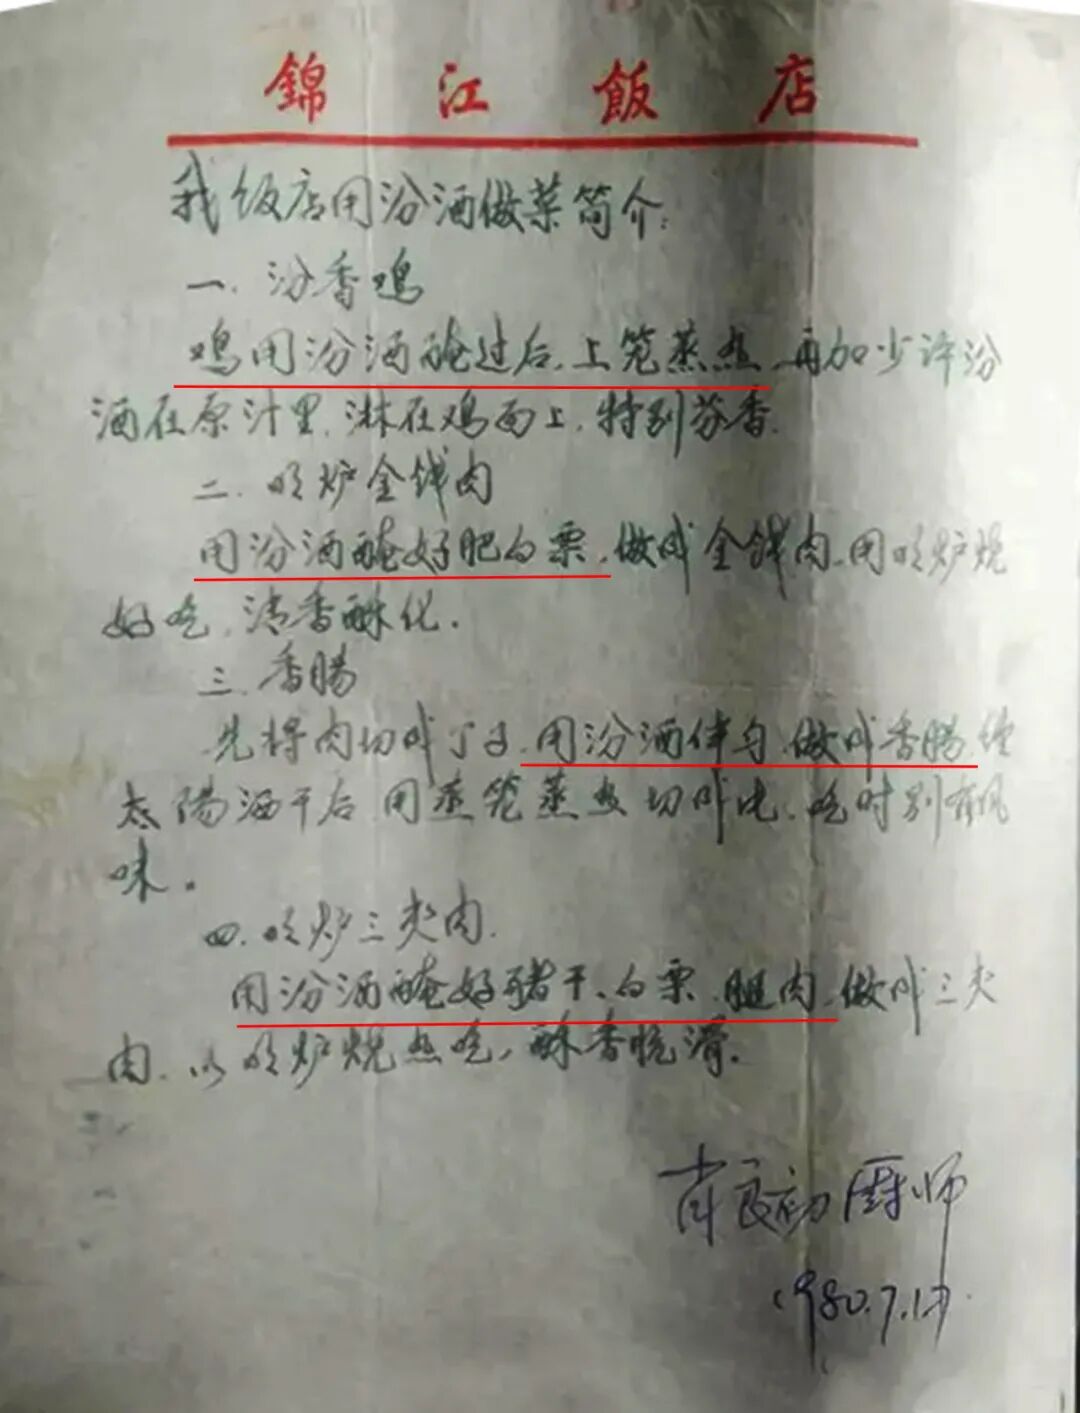 錦江飯店
我饭店用汾酒做菜简介:
一.汾香鸡
鸡用汾酒醃过后,上笼蒸熟,再加少许汾
酒在原汁里,淋在鸡面上,特别芬香.
二.明炉金钱肉
用汾酒醃好肥白票,做成金钱肉,用明炉烧
好吃,清香酥化.
三.香腸
先将肉切成丁子,用汾酒伴匀,做成香腸,经
太陽洒干后,用蒸笼蒸熟切成片,吃时别有风
味。
四.明炉三夹肉.
用汾酒醃好猪干、白票、腿肉,做成三夹
肉,以明炉烧热吃,酥香脆滑.
良 厨师
1980.7.17